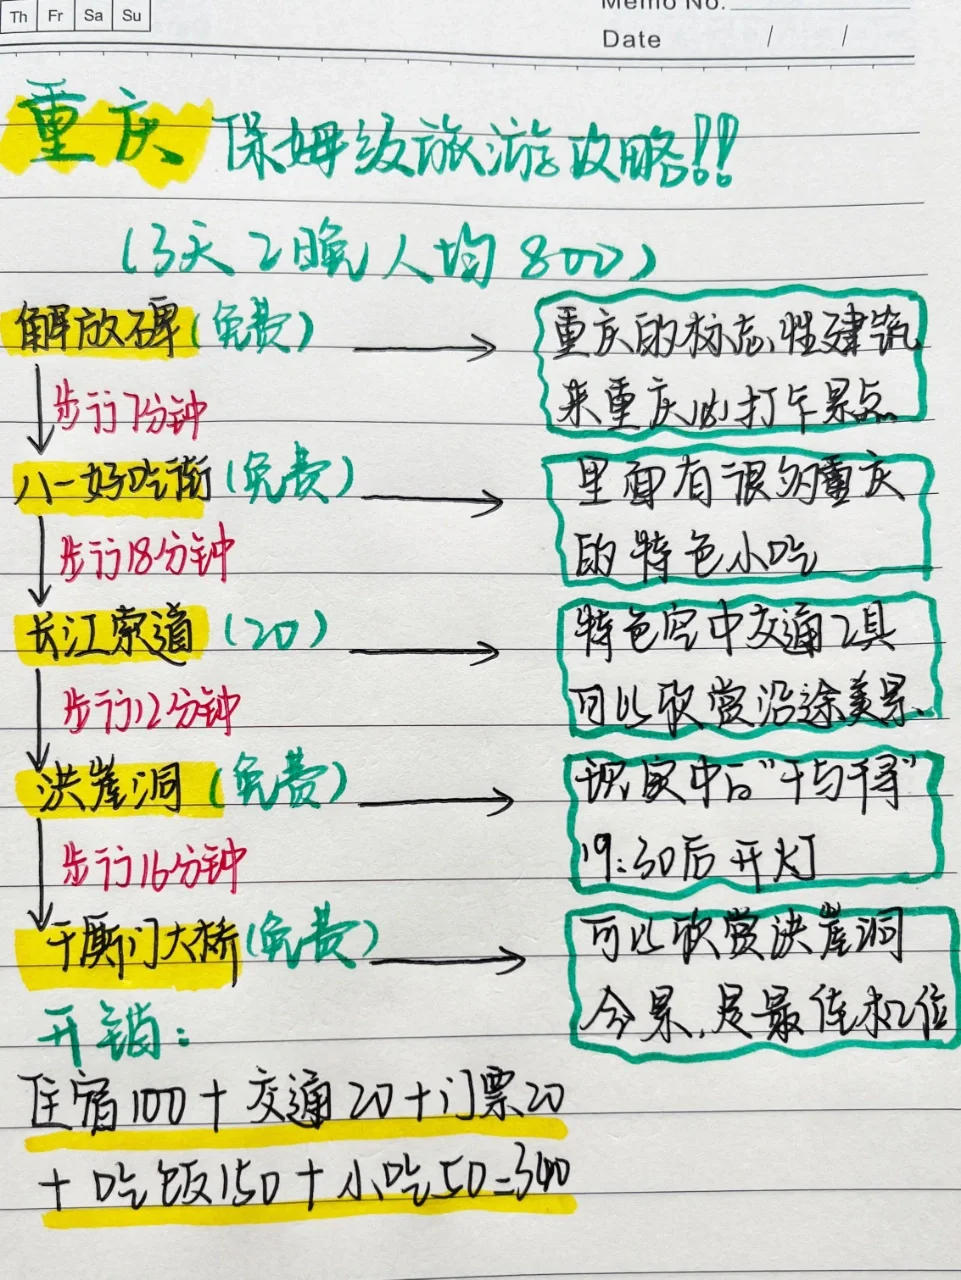 Th Fr Sa Su
Memo No.
Date / /
重庆 保姆级旅游攻略!!
(3天2晚人均800)
解放碑(免费)
重庆的标志性建筑
来重庆必打卡景点
步行7分钟
八一好吃街(免费)
里面有很多重庆
的特色小吃
步行18分钟
长江索道(20)
特色空中交通工具
可以欣赏沿途美景
步行12分钟
洪崖洞(免费)
现实中的"千与千寻"
19:30后开灯
步行16分钟
千厮门大桥(免费)
可以欣赏洪崖洞
全景,是最佳机位
开销:
住宿100+交通20+门票20
+吃饭150+小吃50=340